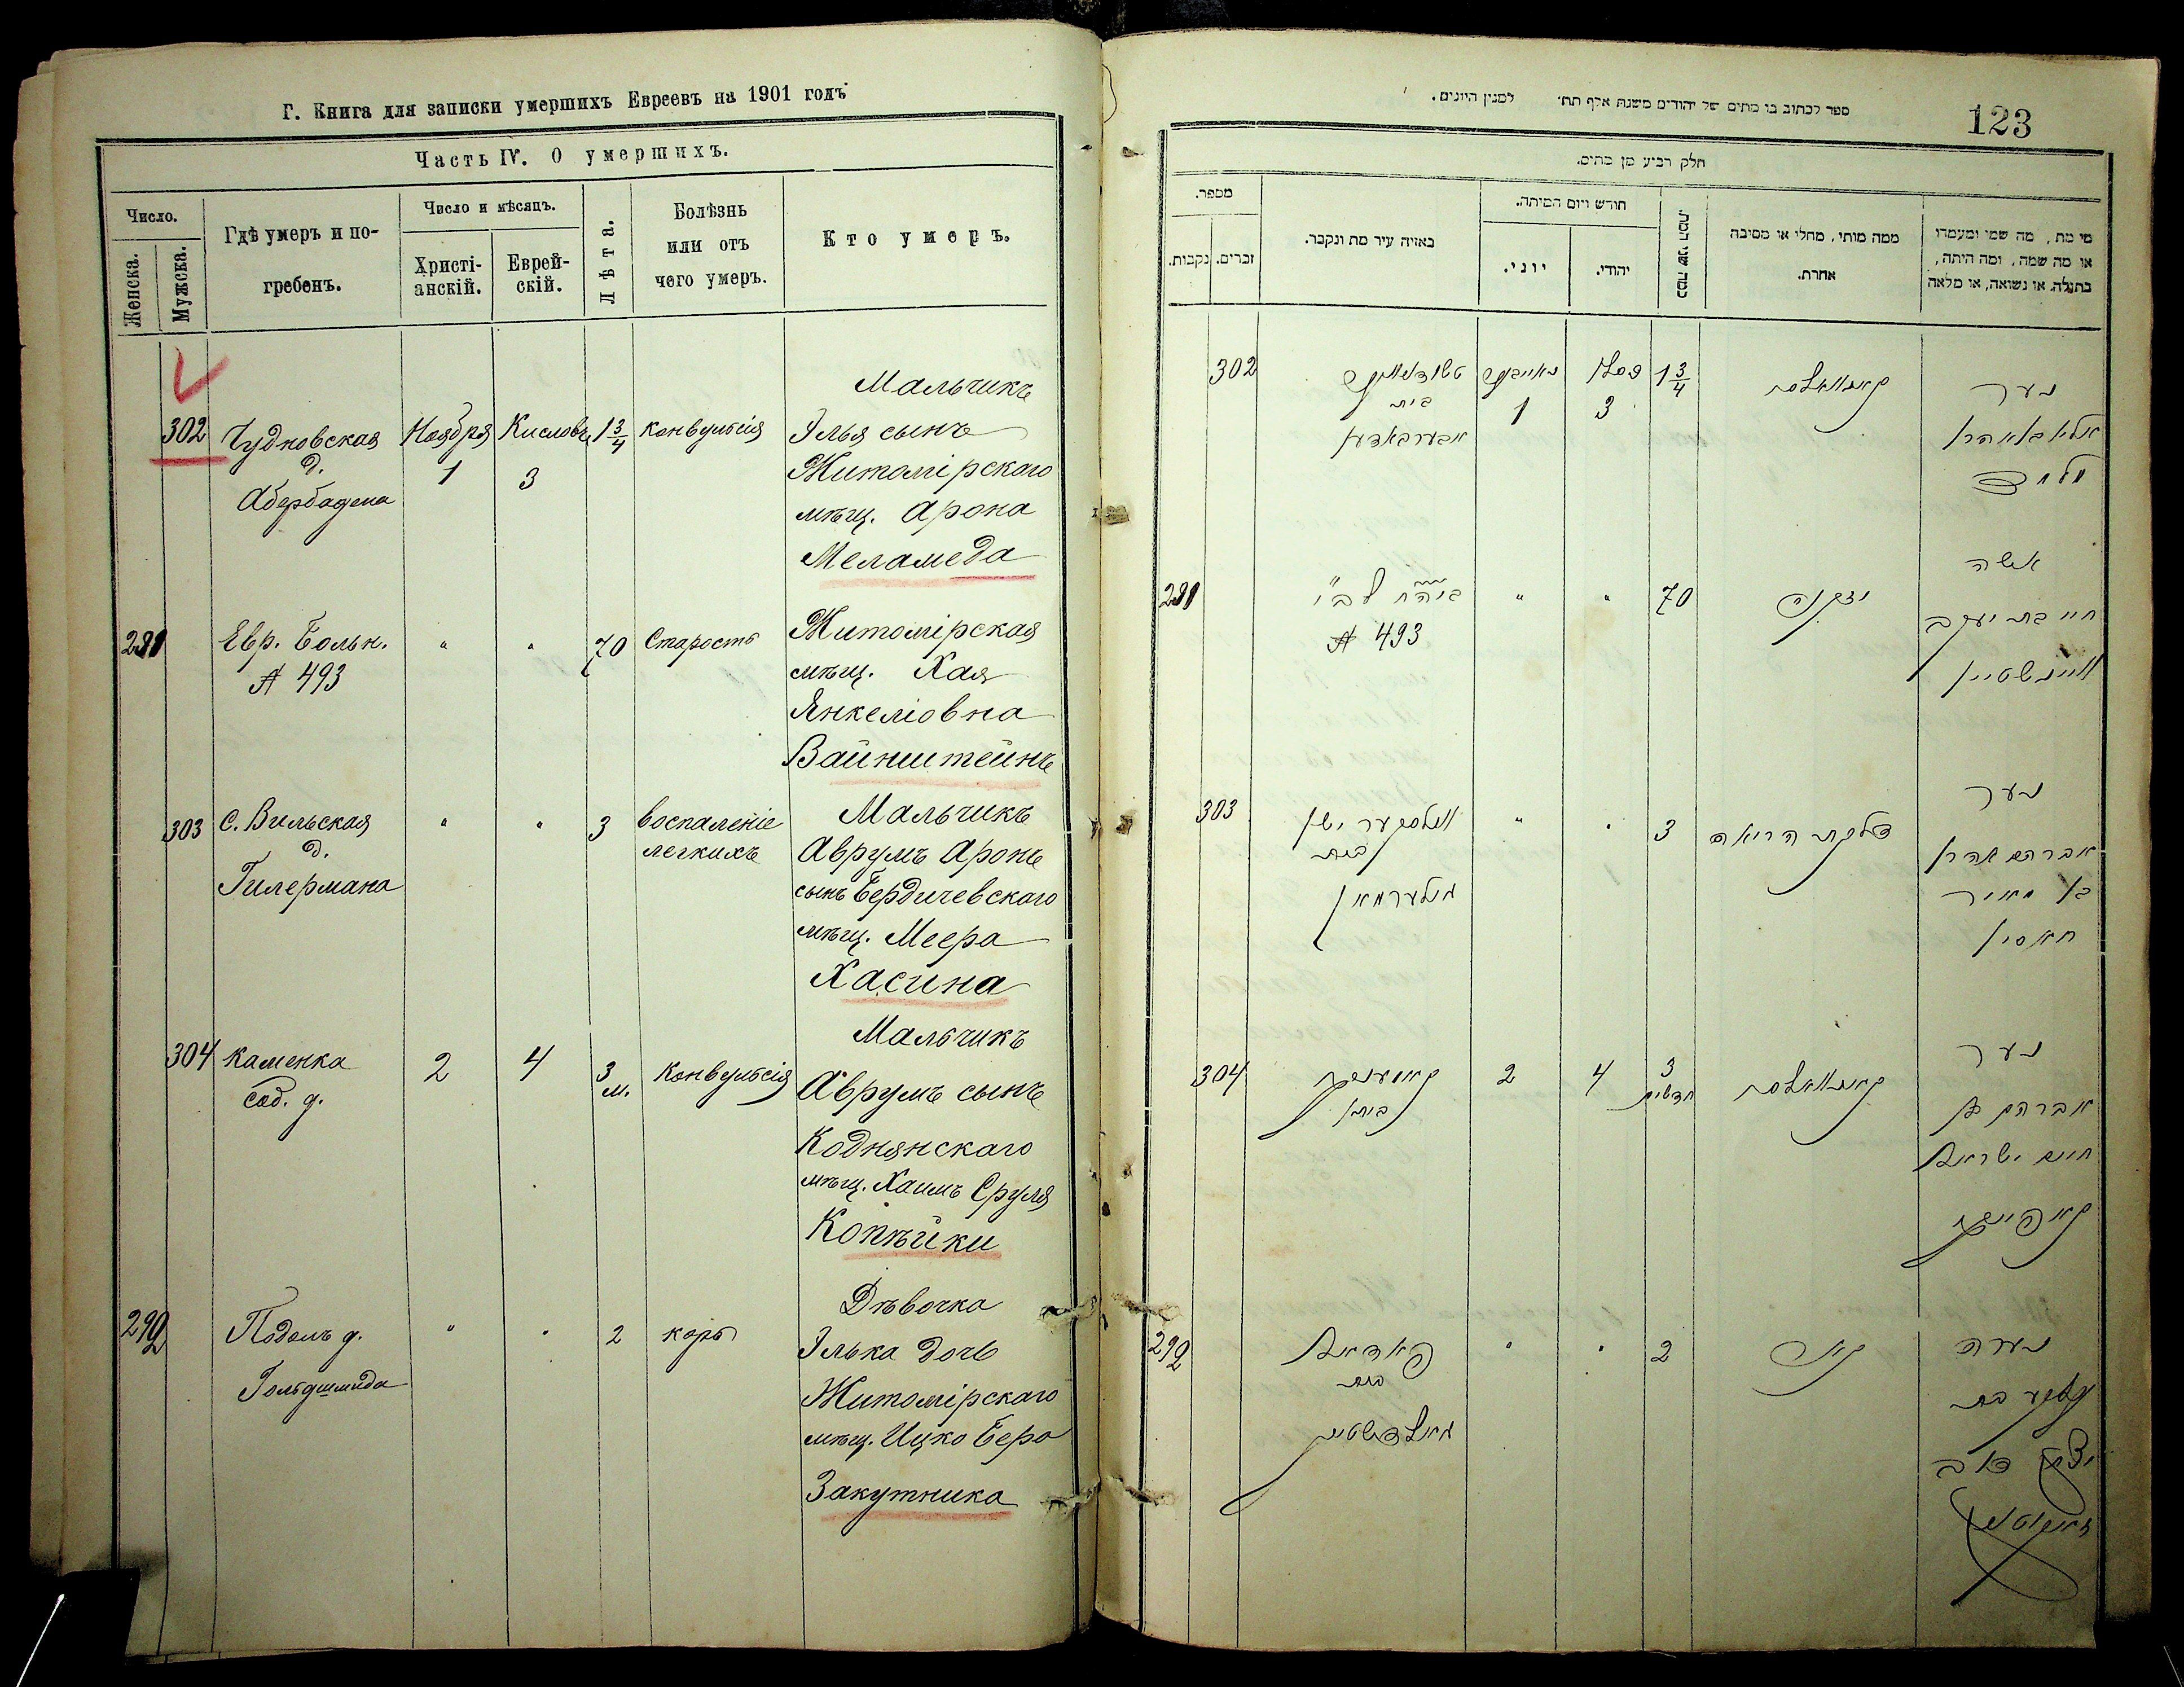 Г. Книга для записки умершихъ Евреевъ на 1901 годъ
Часть IV. О умершихъ.
Число.
Женска.
Мужска.
Гдѣ умеръ и по-
гребенъ.
Число и мѣсяцъ.
Христі-
анскій.
Еврей-
скій.
Лѣта.
Болѣзнь
или отъ
чего умеръ.
Кто умеръ.
302
Чудновская
д.
Абербадена
Ноября
1
Кислова
3
1 3/4
конвульсія
Мальчикъ
Ілья сынъ
Житомірскаго
мѣщ. Арона
Меламеда
291
Евр. Больн.
А 493
"
"
70
Старость
Житомірская
мѣщ. Хая
Янкеліовна
Вайнштейнъ
303
С. Вильская
д.
Гилермана
"
"
3
воспаленіе
легкихъ
Мальчикъ
Аврумъ Аронъ
сынъ Бердичевскаго
мѣщ. Меера
Хасина
304
Каменка
соб. д.
2
4
3
м.
Конвульсія
Мальчикъ
Аврумъ сынъ
Коднянскаго
мѣщ. Хаимъ Сруля
Копѣйки
292
Подолъ д.
Гольдшмида
"
"
2
корь
Дѣвочка
Ілька дочь
Житомірскаго
мѣщ. Ицко Бера
Закутника
ספר לכתוב בו מתים של יהודים משנת אלף תת׳ למנין היונים.
123
חלק רביע מן מתים.
מספר.
נקבות.
זכרים.
באיזה עיר מת ונקבר.
חודש ויום המיתה.
יוני.
יהודי.
כמה שני המת.
ממה מותו, מחלי או מסיבה
אחרת.
מי מת, מה שמו ומעמדו
או מה שמה, ומה היתה,
בתולה, או נשואה, או מלאה
302
בית
אבערבאדען
1
3
1 3/4
נער
291
А 493
"
"
70
אשה
חיי בת יעקב
וויינשטיין
303
בית
גילערמאן
"
"
3
דלקת הריאה
נער
אברהם אהרן
בן מאיר
חאסין
304
2
4
3
חדשים
נער
אברהם בן
חיים ישראל
קאפייקע
292
פאדאל
בית
"
"
2
נערה